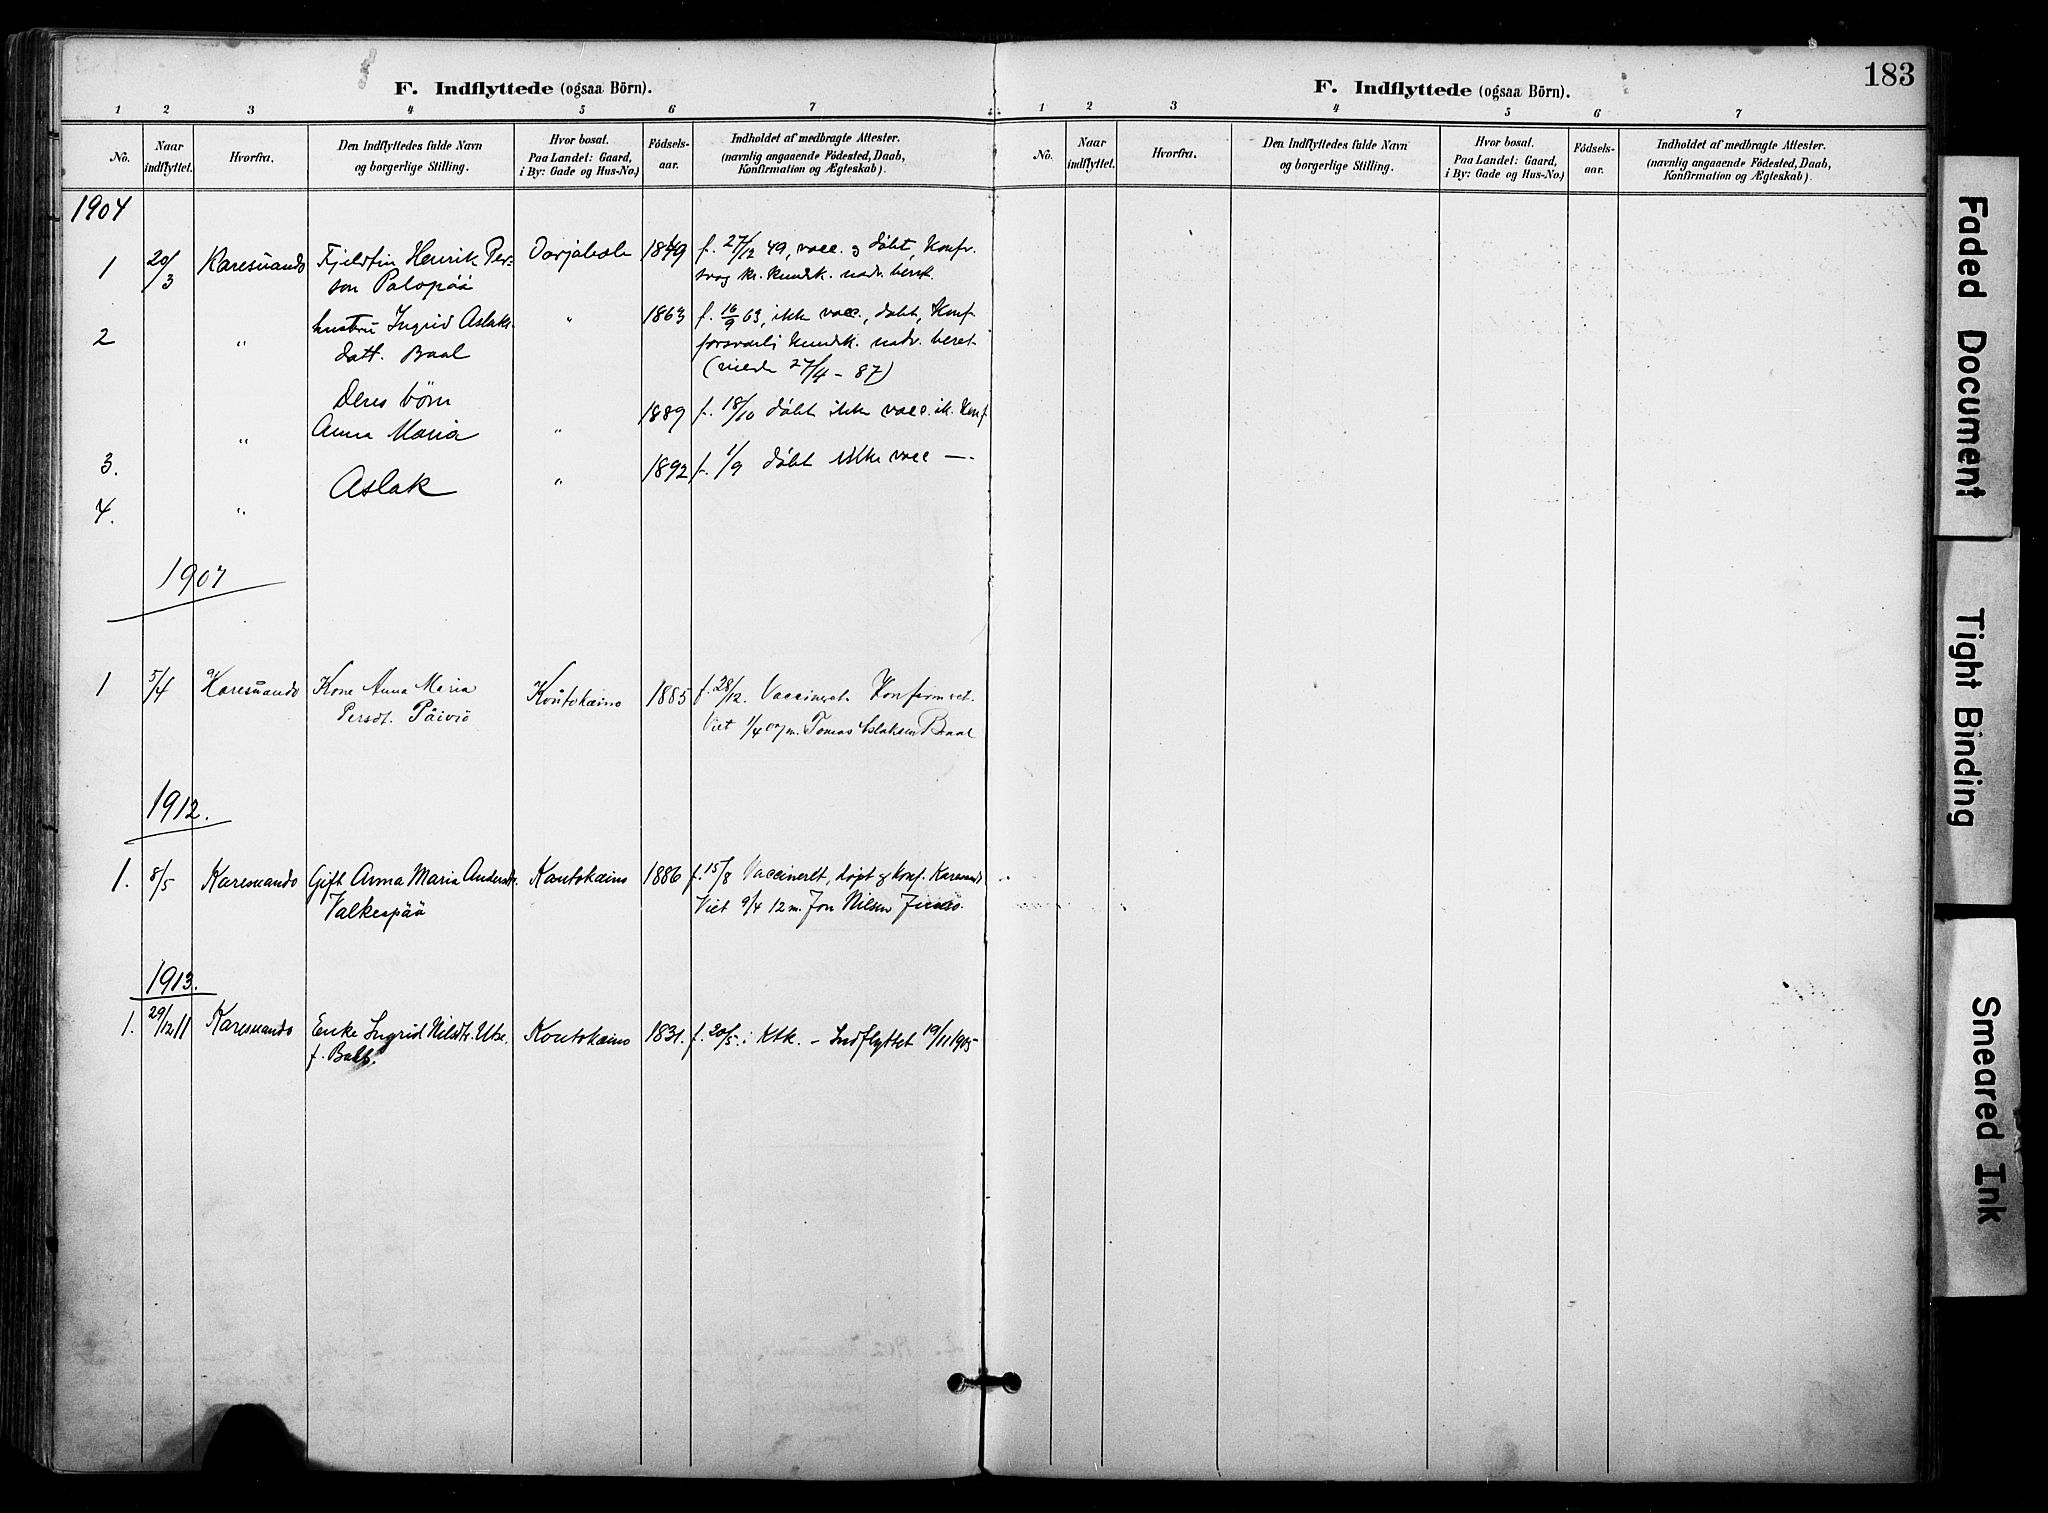 F. Indflyttede (ogsaa Börn).
1 2 3 4 5 6 7
No. Naar indflyttet. Hvorfra. Den Indflyttedes fulde Navn og borgerlige Stilling. Hvor bosat. Paa Landet: Gaard, i By: Gade og Hus-No.) Födsels-aar. Indholdet af medbragte Attester. (navnlig angaaende Födested, Daab, Konfirmation og Ægteskab).
1904
1 20/3 Karesuando Fjeldfin Henrik Per- 1849 f. 27/12 49, vacc. og döbt, Konf.
son Palopää svag kr. kundsk. nadv. beret.
2 " hustru Ingrid Aslaks- " 1863 f. 16/9 63, ikke vacc., döbt, Konf
datt. Baal forsvarlig kundsk. nadv. beret
27/4 - 87)
Deres börn
" Anna Maria " 1889 f. 18/10 döbt ikke vacc. ik. Konf.
3. Aslak " 1892 f. 1/9 döbt ikke vacc —
4. "
1907
1 5/4 Karesuando Kone Anna Maria Koutokæino 1885 f. 28/12. Vaccineret. Konfirmeret.
Persdt. Päiviö Viet 1/4 07 m. Tomas Aslaksen Baal
1912.
1. 8/5 Karesuando Gift Anna Maria Andersdt. Kautokæino 1886 f. 15/8 Vaccineret, döpt og Konf. Karesuando
Valkeapää Viet 9/4 12 m. Jon Nilsen
1913.
1. 29/12 11 Karesuando Enke Ingrid Nilsdtr. Utse. Koutokæino 1831. f. 20/5 i Ktk. – Indflyttet 19/11 1905
f. Balt.
F. Indflyttede (ogsaa Börn).
183
1 2 3 4 5 6 7
No. Naar indflyttet. Hvorfra. Den Indflyttedes fulde Navn og borgerlige Stilling. Hvor bosat. Paa Landet: Gaard, i By: Gade og Hus-No.) Födsels-aar. Indholdet af medbragte Attester. (navnlig angaaende Födested, Daab, Konfirmation og Ægteskab).
Faded Document
Tight Binding
Smeared Ink